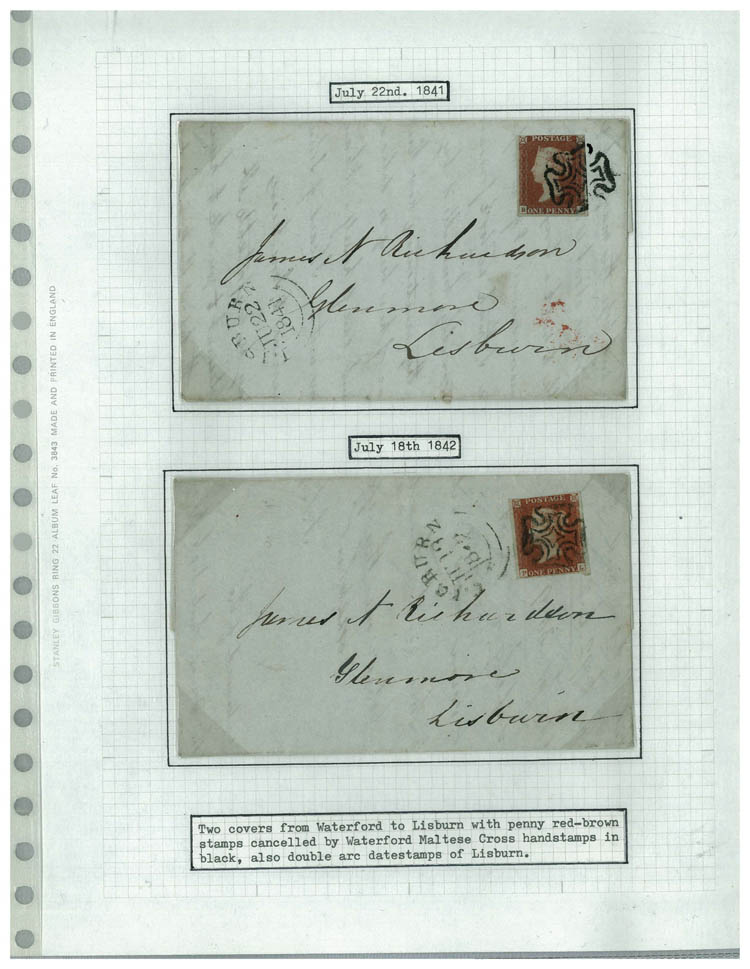 July 22nd. 1841
POSTAGE
ONE PENNY
James N Richardson
Glenmore
Lisburn
BURN
JU 22
1841
July 18th 1842
POSTAGE
ONE PENNY
BURN
James N Richardson
Glenmore
Lisburn
Two covers from Waterford to Lisburn with penny red-brown
stamps cancelled by Waterford Maltese Cross handstamps in
black, also double arc datestamps of Lisburn.
STANLEY GIBBONS RING 22 ALBUM LEAF No. 3843 MADE AND PRINTED IN ENGLAND